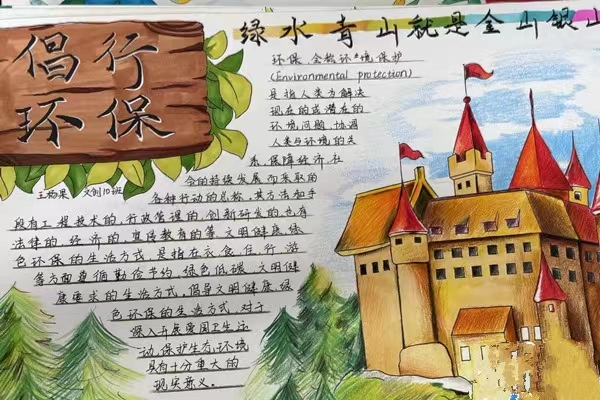 绿水青山就是金山银山
倡行
环保
环保 全称环境保护
(Environmental protection)
是指人类为解决
现在的或潜在的
环境问题,协调
人类与环境的关
系,保障经济社
会的持续发展而采取的
各种行动的总称。其方法和手
段有工程技术的、行政管理的、创新研发的,也有
法律的、经济的、宣传教育的等。文明健康绿
色环保的生活方式,是指在衣食住行游
等方面遵循勤俭节约、绿色低碳、文明健
康要求的生活方式,倡导文明健康绿
色环保的生活方式,对于
深入开展爱国卫生运
动,保护生态环境
具有十分重大的
现实意义。
文创10班